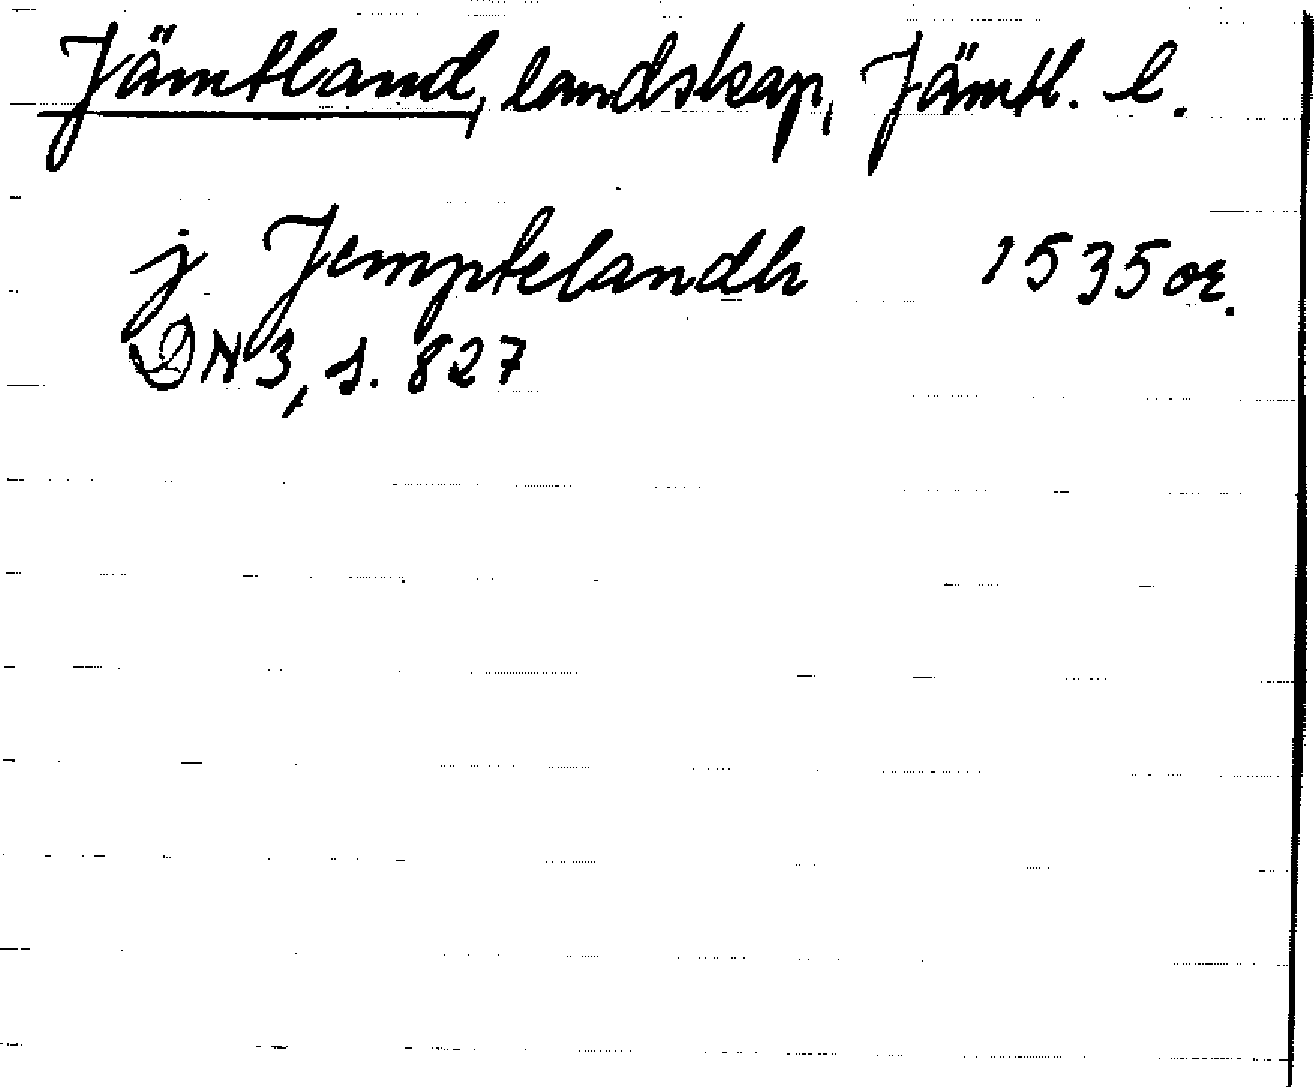 Jämtland, landskap, Jämtl. l.
j Jemptelandh 1535 or.
DN 3, s. 827